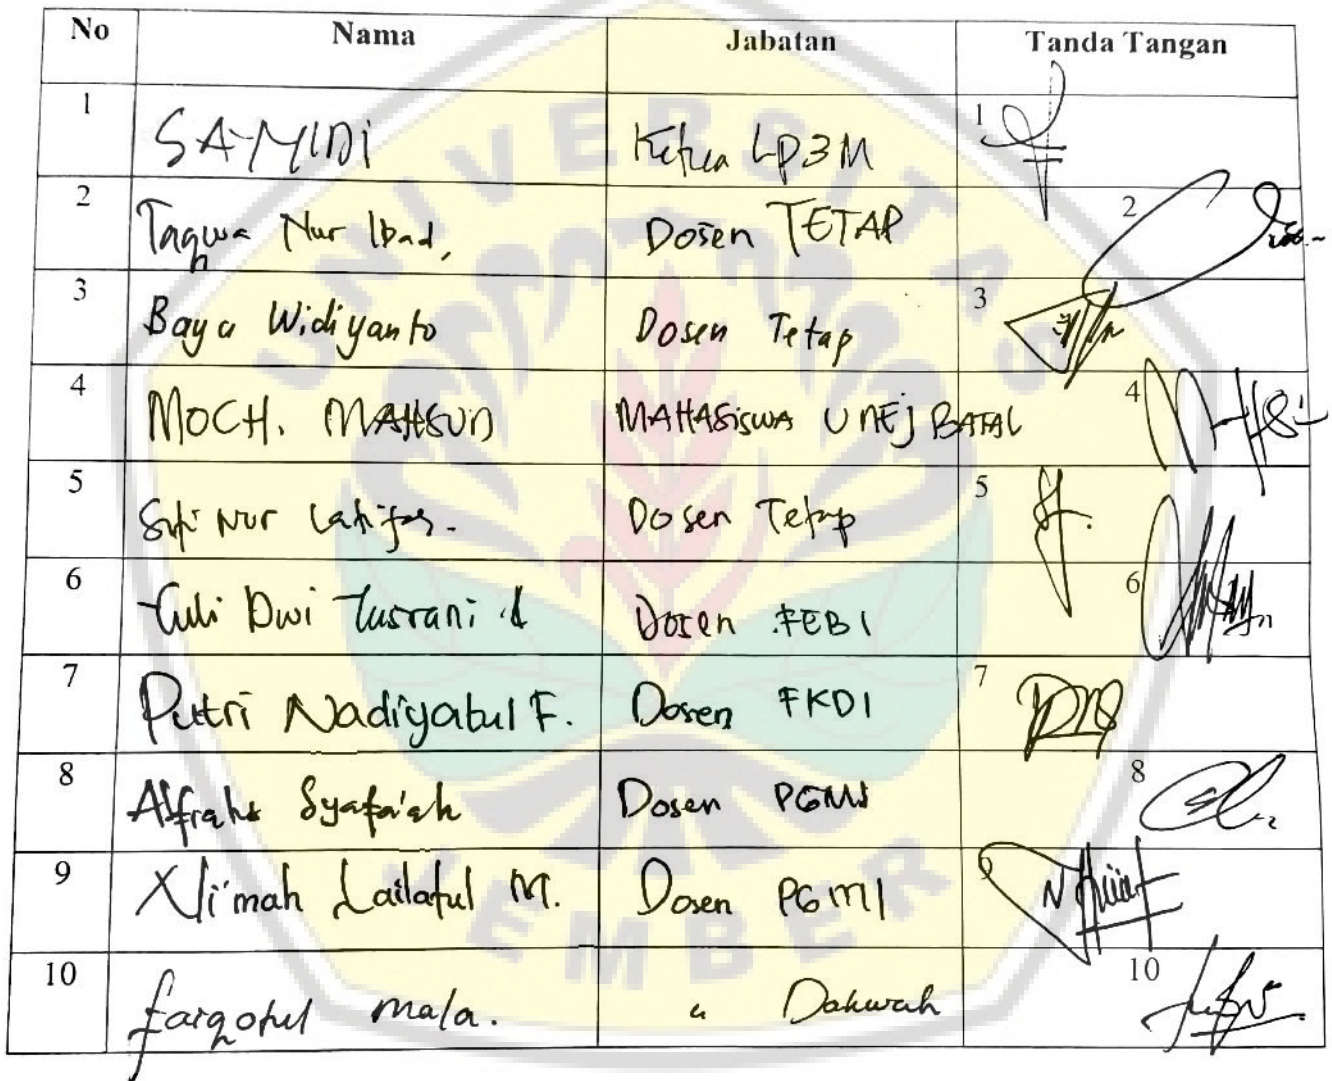 No Nama Jabatan Tanda Tangan
1 SAMIDI Ketua LP3M 1
2 Taqwa Nur Ibad, Dosen TETAP 2
3 Bayu Widiyanto Dosen Tetap 3
4 MOCH. MAHSUN MAHASISWA UNEJ BATAL 4
5 Siti Nur Latifas. Dosen Tetap 5
6 Yuli Dwi Yusrani Dosen FEBI 6
7 Putri Nadiyatul F. Dosen FKDI 7
8 Syafa'ah Dosen PGMI 8
9 Ni'mah Lailatul M. Dosen PGMI 9
10 faiqotul mala. " Dakwah 10
UNIVERSITAS
JEMBER